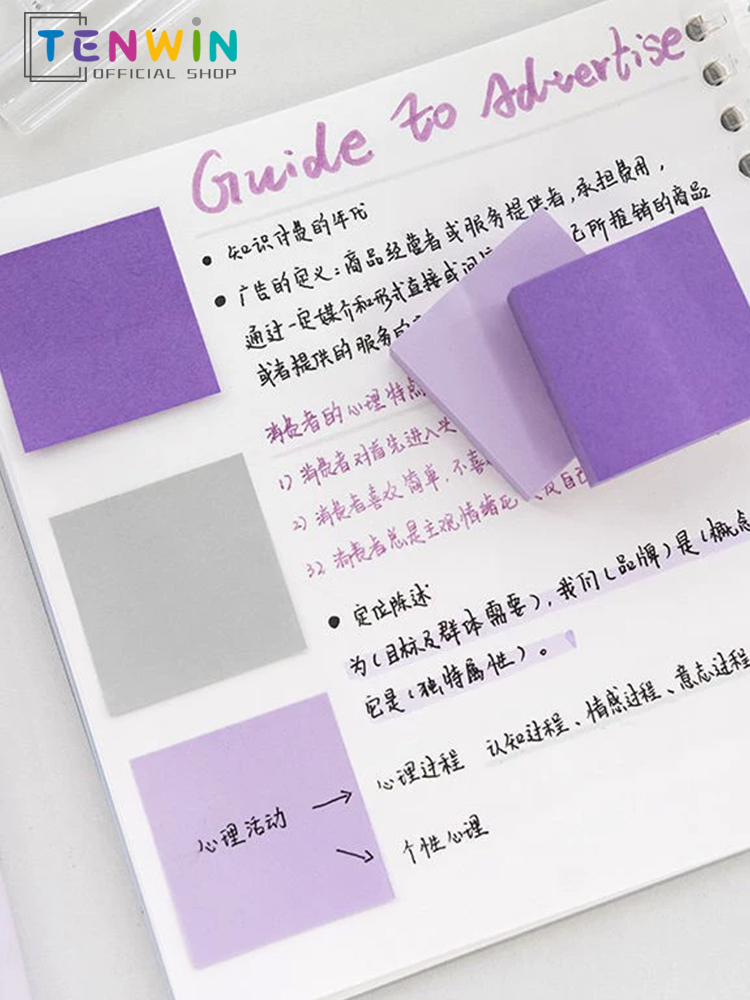 TENWIN
OFFICIAL SHOP
Guide to Advertise
• 知识付费的年代
• 广告的定义:商品经营者或服务提供者,承担费用,
通过一定媒介和形式直接或间接 己所推销的商品
或者提供的服务的
消费者的心理特点
1) 消费者对首先进入
2) 消费者喜欢简单,不喜
3) 消费者总是主观情绪化 自己
• 定位陈述
为(目标及群体需要),我们(品牌)是(概念
它是(独特属性)。
心理过程 认知过程、情感过程、意志过程
心理活动
个性心理